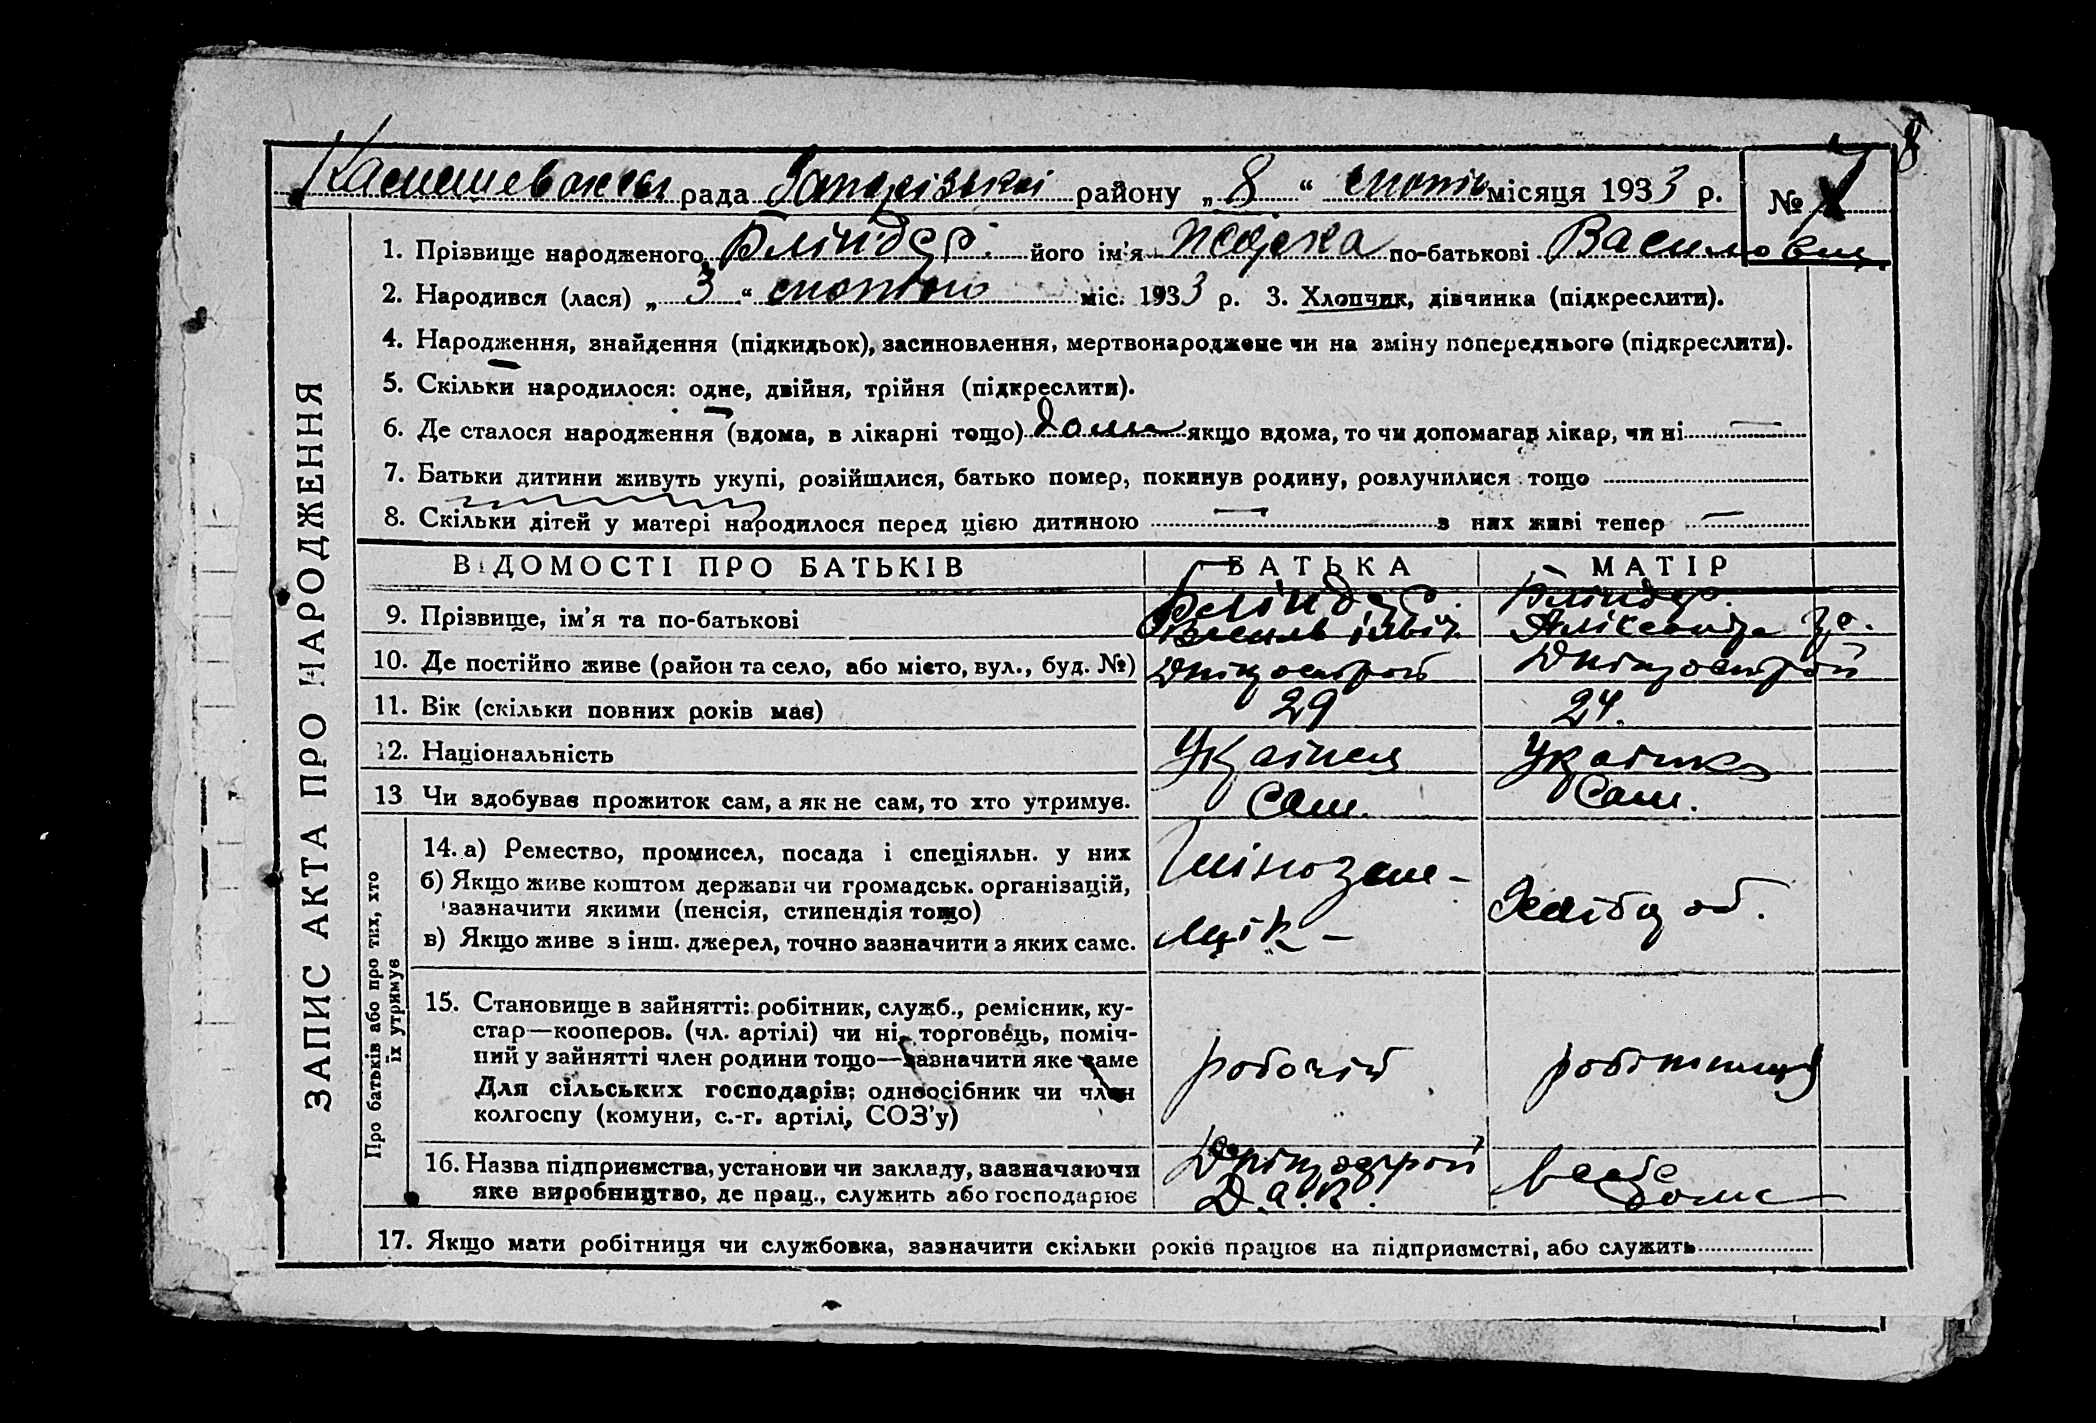 рада районy „ 8 “ місяця 1933 р. №
1. Прізвище народженого Бліндер його ім'я по-батькові Василович
2. Народився (лася) „ 3 “ міс. 1933 р. 3. Хлопчик, дівчинка (підкреслити).
4. Народження, знайдення (підкидьок), засиновлення, мертвонароджене чи на зміну попереднього (підкреслити).
5. Скільки народилося: одне, двійня, трійня (підкреслити).
6. Де сталося народження (вдома, в лікарні тощо) дома якщо вдома, то чи допомагав лікар, чи ні —
7. Батьки дитини живуть укупі, розійшлися, батько помер, покинув родину, розлучилися тощо
8. Скільки дітей у матері народилося перед цією дитиною — з них живі тепер —
ЗАПИС АКТА ПРО НАРОДЖЕННЯ
ВІДОМОСТІ ПРО БАТЬКІВ БАТЬКА МАТІР
9. Прізвище, ім'я та по-батькові Бліндер. Бліндер.
Василь
10. Де постійно живе (район та село, або місто, вул., буд. №)
11. Вік (скільки повних років має) 29 24.
12. Національність
13 Чи здобуває прожиток сам, а як не сам, то хто утримує. Сам. Сам.
Про батьків або про тих, хто
їх утримує
14. а) Ремество, промисел, посада і спеціяльн. у них
б) Якщо живе коштом держави чи громадськ. організацій,
зазначити якими (пенсія, стипендія тощо)
в) Якщо живе з інш. джерел, точно зазначити з яких саме.
15. Становище в зайнятті: робітник, служб., ремісник, ку-
стар—кооперов. (чл. артілі) чи ні, торговець, поміч-
ний у зайнятті член родини тощо—зазначити яке саме
Для сільських господарів; одноосібник чи член
колгоспу (комуни, с.-г. артілі, СОЗ'у)
робочій робітниця
16. Назва підприємства, установи чи закладу, зазначаючи
яке виробництво, де прац., служить або господарює
17. Якщо мати робітниця чи службовка, зазначити скільки років працює на підприємстві, або служить